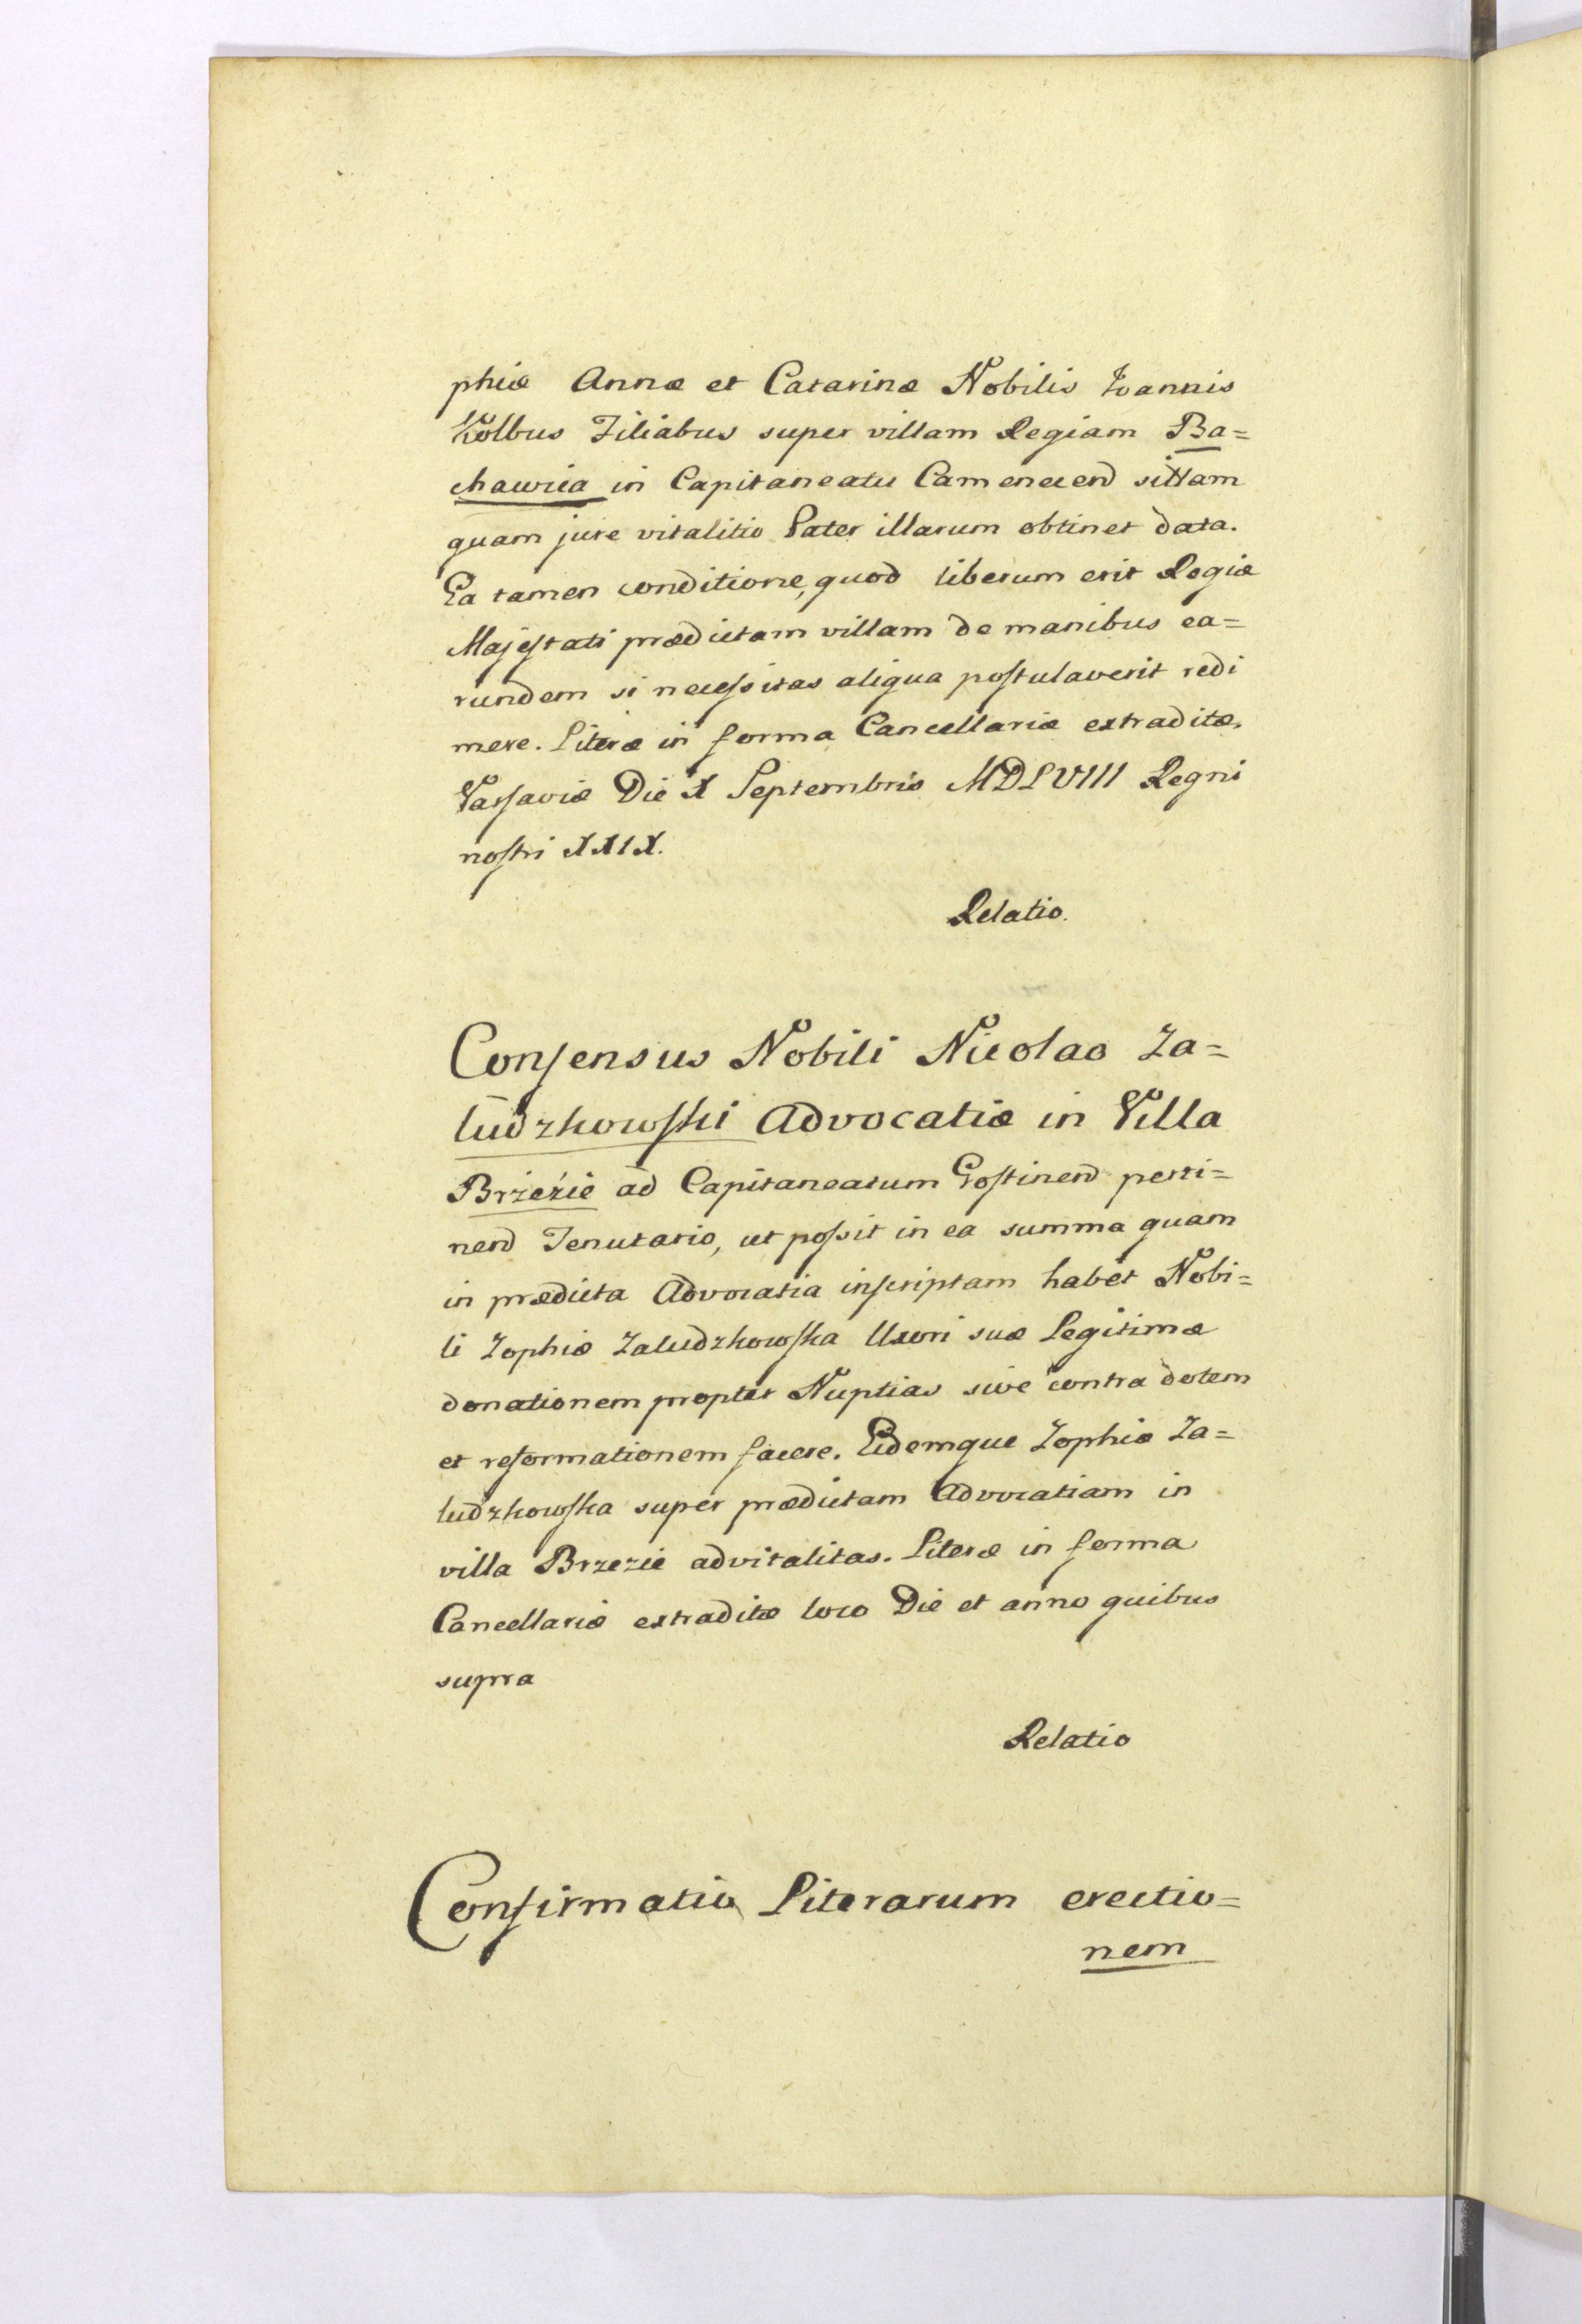 phiæ Annæ et Catarinæ Nobilis Ioannis
Kolbus Filiabus super villam Regiam Ba=
chawica in Capitaneatu Camenecen sittam
quam jure vitalitio Pater illarum obtinet data.
Ea tamen conditione, quod liberum erit Regiæ
Majestati prædictam villam de manibus ea=
rundem si necessitas aliqua postulaverit redi
mere. Literæ in forma Cancellariæ extraditæ.
Varsaviæ Die X Septembris MDLVIII Regni
nostri XXIX.
Relatio.
Consensus Nobili Nicolao Za=
ludzkowski Advocatiæ in Villa
Brzezie ad Capitaneatum Gostinen perti=
nen Tenutario, ut possit in ea summa quam
in prædicta Advocatia inscriptam habet Nobi=
li Zophiæ Zaludzkowska Uxori suæ Legitimæ
donationem propter Nuptias sive contra dotem
et reformationem facere. Eidemque Zophiæ Za=
ludzkowska super prædictam Advocatiam in
villa Brzezie advitalitas. Literæ in forma
Cancellariæ extraditæ loco Die et anno quibus
supra
Relatio
Confirmatio Literarum erectio=
nem